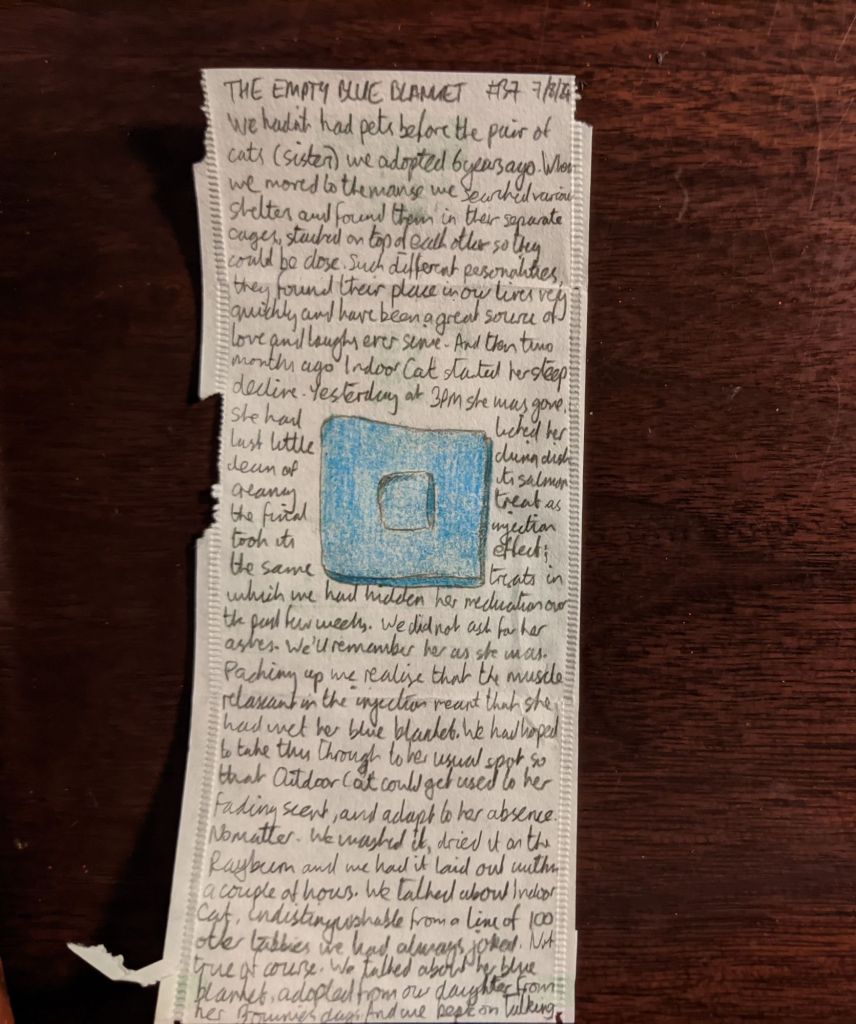 THE EMPTY BLUE BLANKET #37 7/8/2
We hadn't had pets before the pair of
cats (sister) we adopted 6 years ago. When
we moved to the manse we searched various
shelters and found them in their separate
cages, stacked on top of each other so they
could be close. Such different personalities,
they found their place in our lives very
quickly and have been a great source of
love and laughs ever since. And then two
months ago Indoor Cat started her steep
decline. Yesterday at 3PM she was gone.
She had licked her
last little during dish
clean of its salmon
creamy treat as
the final injection
took its effect;
the same treats in
which we had hidden her medication over
the past few weeks. We did not ask for her
ashes. We'll remember her as she was.
Packing up we realise that the muscle
relaxant in the injection meant that she
had wet her blue blanket. We had hoped
to take this through to her usual spot, so
that Outdoor Cat could get used to her
fading scent, and adapt to her absence.
No matter. We washed it, dried it on the
Rayburn and we had it laid out within
a couple of hours. We talked about Indoor
Cat, indistinguishable from a line of 100
other tabbies we had always joked. Not
true of course. We talked about her blue
blanket, adopted from our daughter from
her Brownies days. And we kept on talking